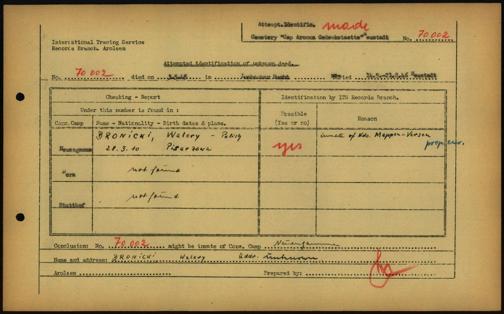 Attempt.Identific. made
No. 70 002
International Tracing Service
Records Branch. Arolsen
Cemetery "Cap Arcona Gedenkstaette" Neustadt
Attempted identification of unknown dead.
No. 70 002 died on 3.5.45 in
Checking - Report
Identification by ITS Records Branch.
Under this number is found in :
Possible
(Yes or no)
Reason
Conc.Camp
Name - Nationality - Birth dates & place.
Neuengamme
BRONICKI, Walery - Polish
28.3.10
yes
not found
Stutthof
not found
Conclusion: No. 70 002 might be inmate of Conc. Camp Neuengamme
Name and address: BRONICKI Walery Addr. unknown
Arolsen
Prepared by: